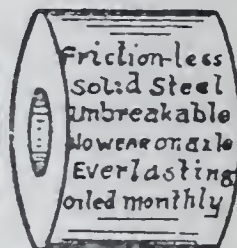 Friction-less
Solid Steel
Unbreakable
No wear on axle
Everlasting
oiled monthly